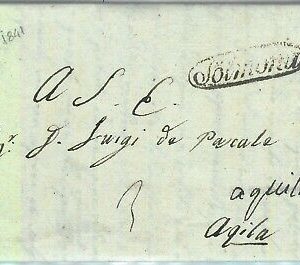 1841
Solmona
A S. E.
r. D. Luigi de Pacale
3
aquil
Aqila